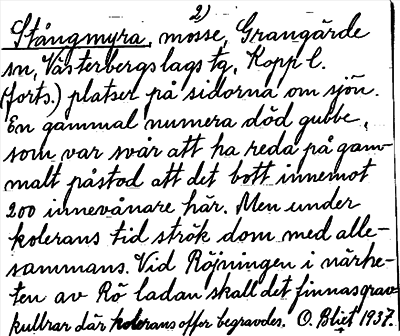 2)
Stångmyra, mosse, Grangärde
sn, Västerbergslags tg, Kopp l.
(forts.) platser på sidorna om sjön.
En gammal numera död gubbe,
som var svår att ha reda på gam-
malt påstod att det bott innemot
200 innevånare här. Men under
kolerans tid strök dom med alle-
sammans. Vid Röjningen i närhe-
ten av Rö ladan skall det finnas grav-
kullrar där kolerans offer begravdes. O. Blixt 1937.